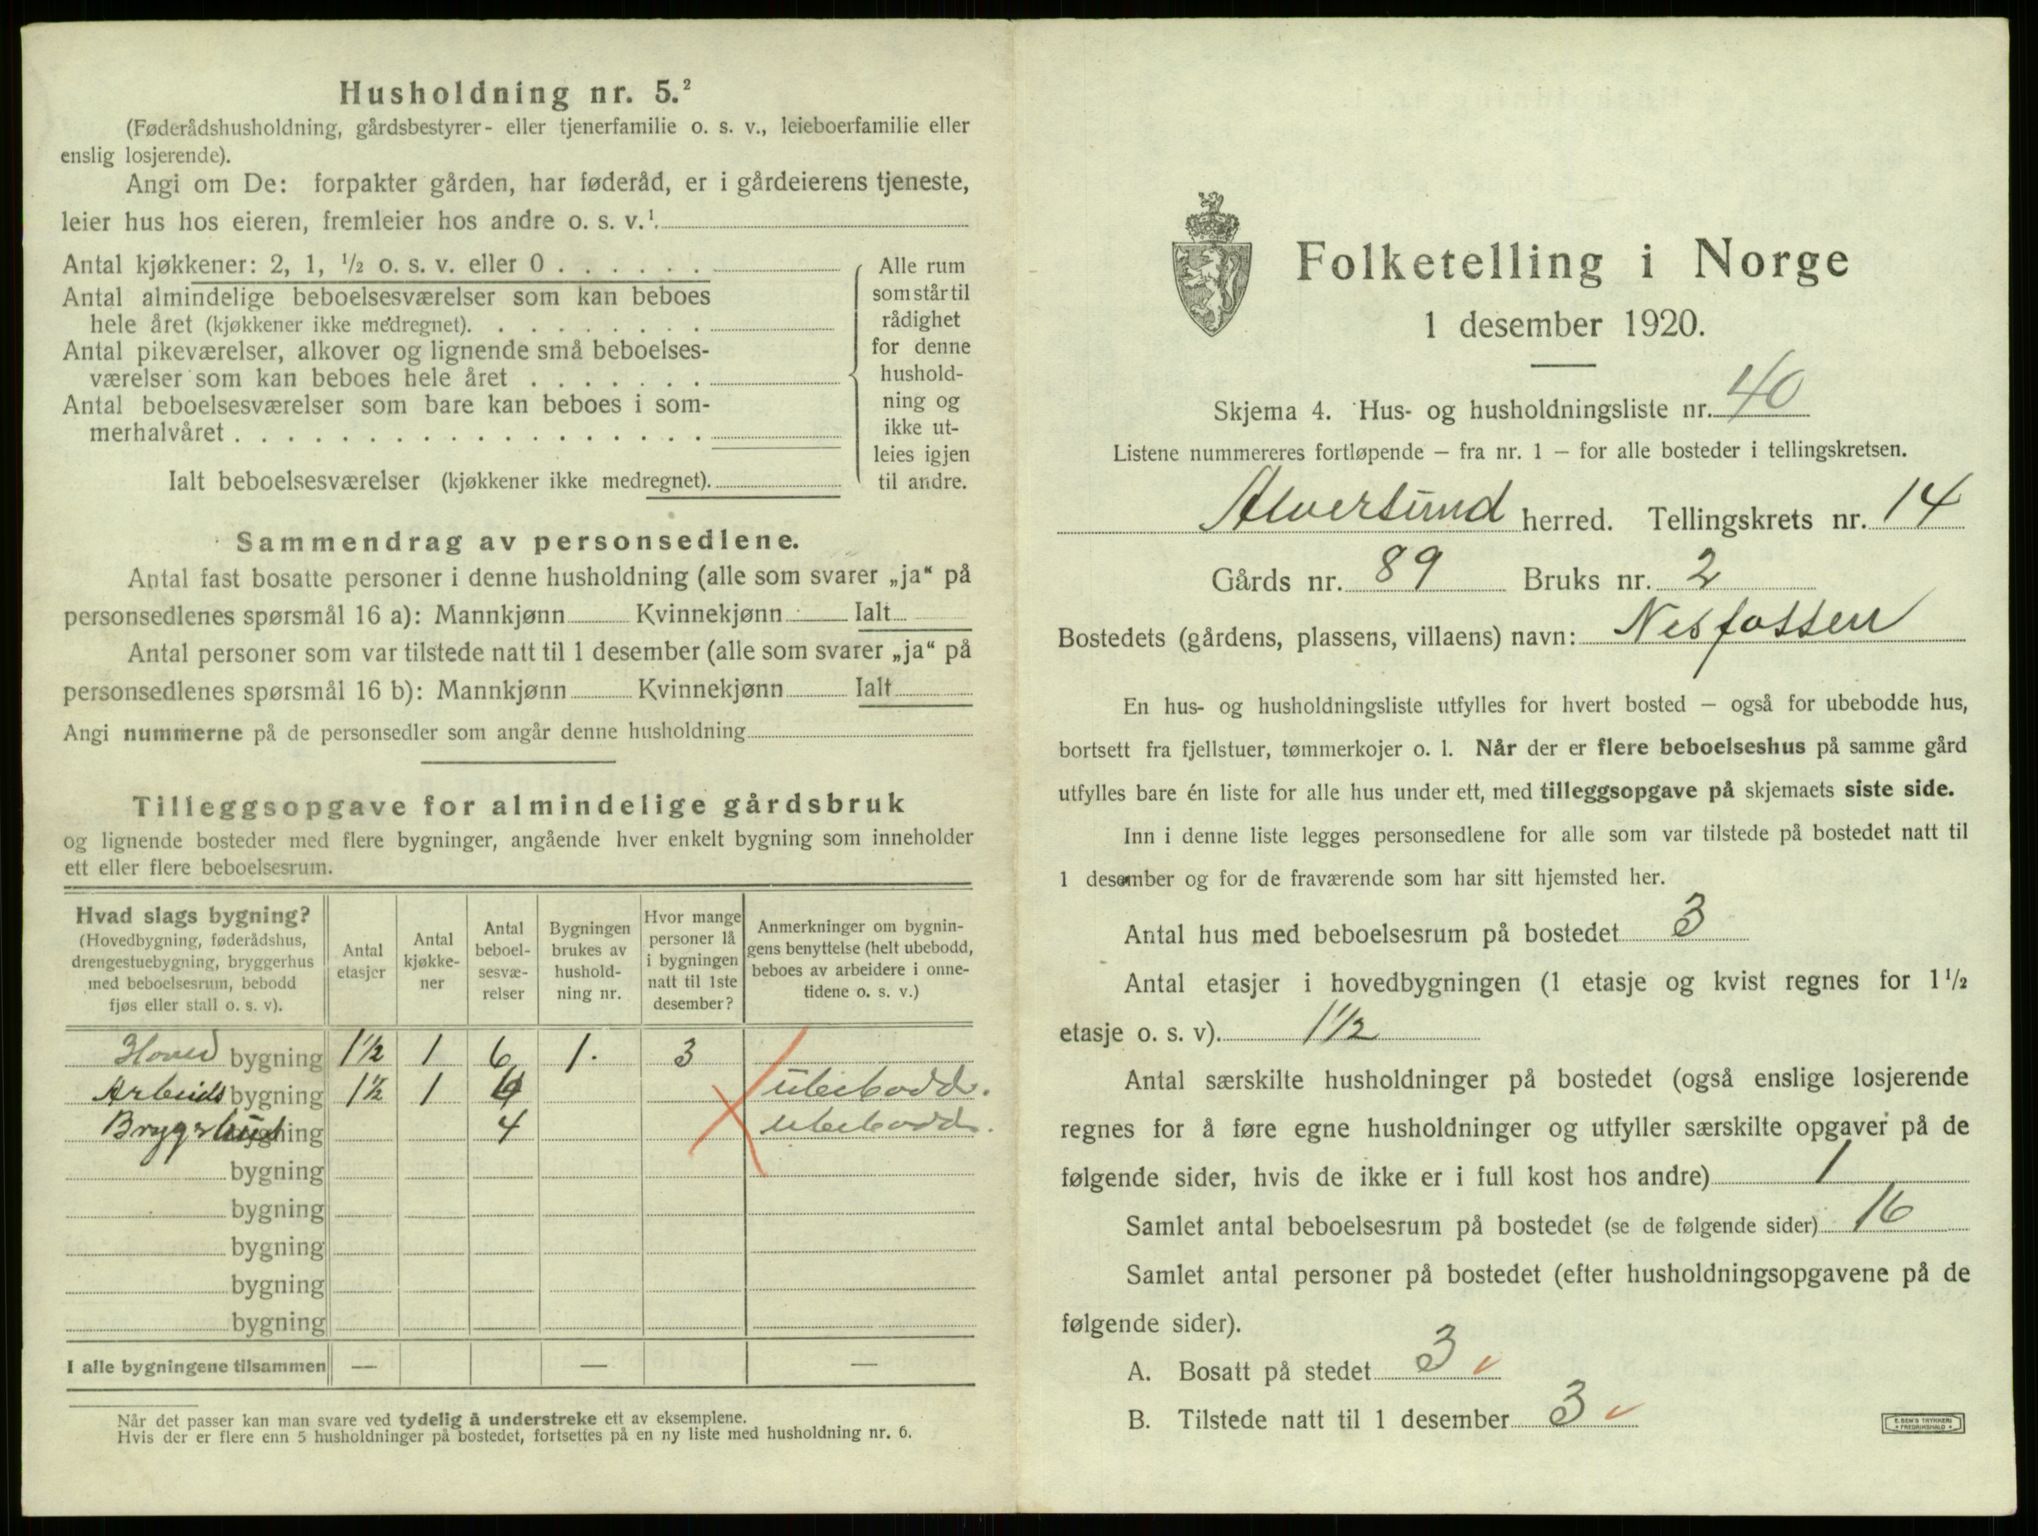 Husholdning nr. 5.²
(Føderådshusholdning, gårdsbestyrer- eller tjenerfamilie o. s. v., leieboerfamilie eller
enslig losjerende).
Angi om De: forpakter gården, har føderåd, er i gårdeierens tjeneste,
leier hus hos eieren, fremleier hos andre o. s. v.¹
Antal kjøkkener: 2, 1, ½ o. s. v. eller 0 . . . . . .
Antal almindelige beboelsesværelser som kan beboes
hele året (kjøkkener ikke medregnet). . . . . . . . .
Antal pikeværelser, alkover og lignende små beboelses-
værelser som kan beboes hele året . . . . . . .
Antal beboelsesværelser som bare kan beboes i som-
merhalvåret . . . . . . . . . . . . . . . . . .
Ialt beboelsesværelser (kjøkkener ikke medregnet).
Alle rum
som står til
rådighet
for denne
hushold-
ning og
ikke ut-
leies igjen
til andre.
Sammendrag av personsedlene.
Antal fast bosatte personer i denne husholdning (alle som svarer „ja“ på
personsedlenes spørsmål 16 a): Mannkjønn Kvinnekjønn Ialt
Antal personer som var tilstede natt til 1 desember (alle som svarer „ja“ på
personsedlenes spørsmål 16 b): Mannkjønn Kvinnekjønn Ialt
Angi nummerne på de personsedler som angår denne husholdning
Tilleggsopgave for almindelige gårdsbruk
og lignende bosteder med flere bygninger, angående hver enkelt bygning som inneholder
ett eller flere beboelsesrum.
Hvad slags bygning?
(Hovedbygning, føderådshus,
drengestuebygning, bryggerhus
med beboelsesrum, bebodd
fjøs eller stall o. s. v).
Antal
etasjer
Antal
kjøkke-
ner
Antal
beboel-
sesvæ-
relser
Bygningen
brukes av
hushold-
ning nr.
Hvor mange
personer lå
i bygningen
natt til 1ste
desember?
Anmerkninger om bygnin-
gens benyttelse (helt ubebodd,
beboes av arbeidere i onne-
tidene o. s. v.)
Hoved bygning 1½ 1 6 1. 3
Arbeids bygning 1½ 1 6 ubebodd.
Brygghus bygning 4 ubebodd.
bygning
bygning
bygning
bygning
bygning
I alle bygningene tilsammen — — —
Når det passer kan man svare ved tydelig å understreke ett av eksemplene.
Hvis der er flere enn 5 husholdninger på bostedet, fortsettes på en ny liste med husholdning nr. 6.
Folketelling i Norge
1 desember 1920.
Skjema 4. Hus- og husholdningsliste nr. 40
Listene nummereres fortløpende — fra nr. 1 — for alle bosteder i tellingskretsen.
Alversund herred. Tellingskrets nr. 14
Gårds nr. 89 Bruks nr. 2
Bostedets (gårdens, plassens, villaens) navn: Nesfossen
En hus- og husholdningsliste utfylles for hvert bosted — også for ubebodde hus,
bortsett fra fjellstuer, tømmerkojer o. l. Når der er flere beboelseshus på samme gård
utfylles bare én liste for alle hus under ett, med tilleggsopgave på skjemaets siste side.
Inn i denne liste legges personsedlene for alle som var tilstede på bostedet natt til
1 desember og for de fraværende som har sitt hjemsted her.
Antal hus med beboelsesrum på bostedet 3
Antal etasjer i hovedbygningen (1 etasje og kvist regnes for 1½
etasje o. s. v). 1½
Antal særskilte husholdninger på bostedet (også enslige losjerende
regnes for å føre egne husholdninger og utfyller særskilte opgaver på de
følgende sider, hvis de ikke er i full kost hos andre) 1
Samlet antal beboelsesrum på bostedet (se de følgende sider) 16
Samlet antal personer på bostedet (efter husholdningsopgavene på de
følgende sider).
A. Bosatt på stedet 3
B. Tilstede natt til 1 desember 3
E. SEM'S TRYKKERI
FREDRIKSHALD